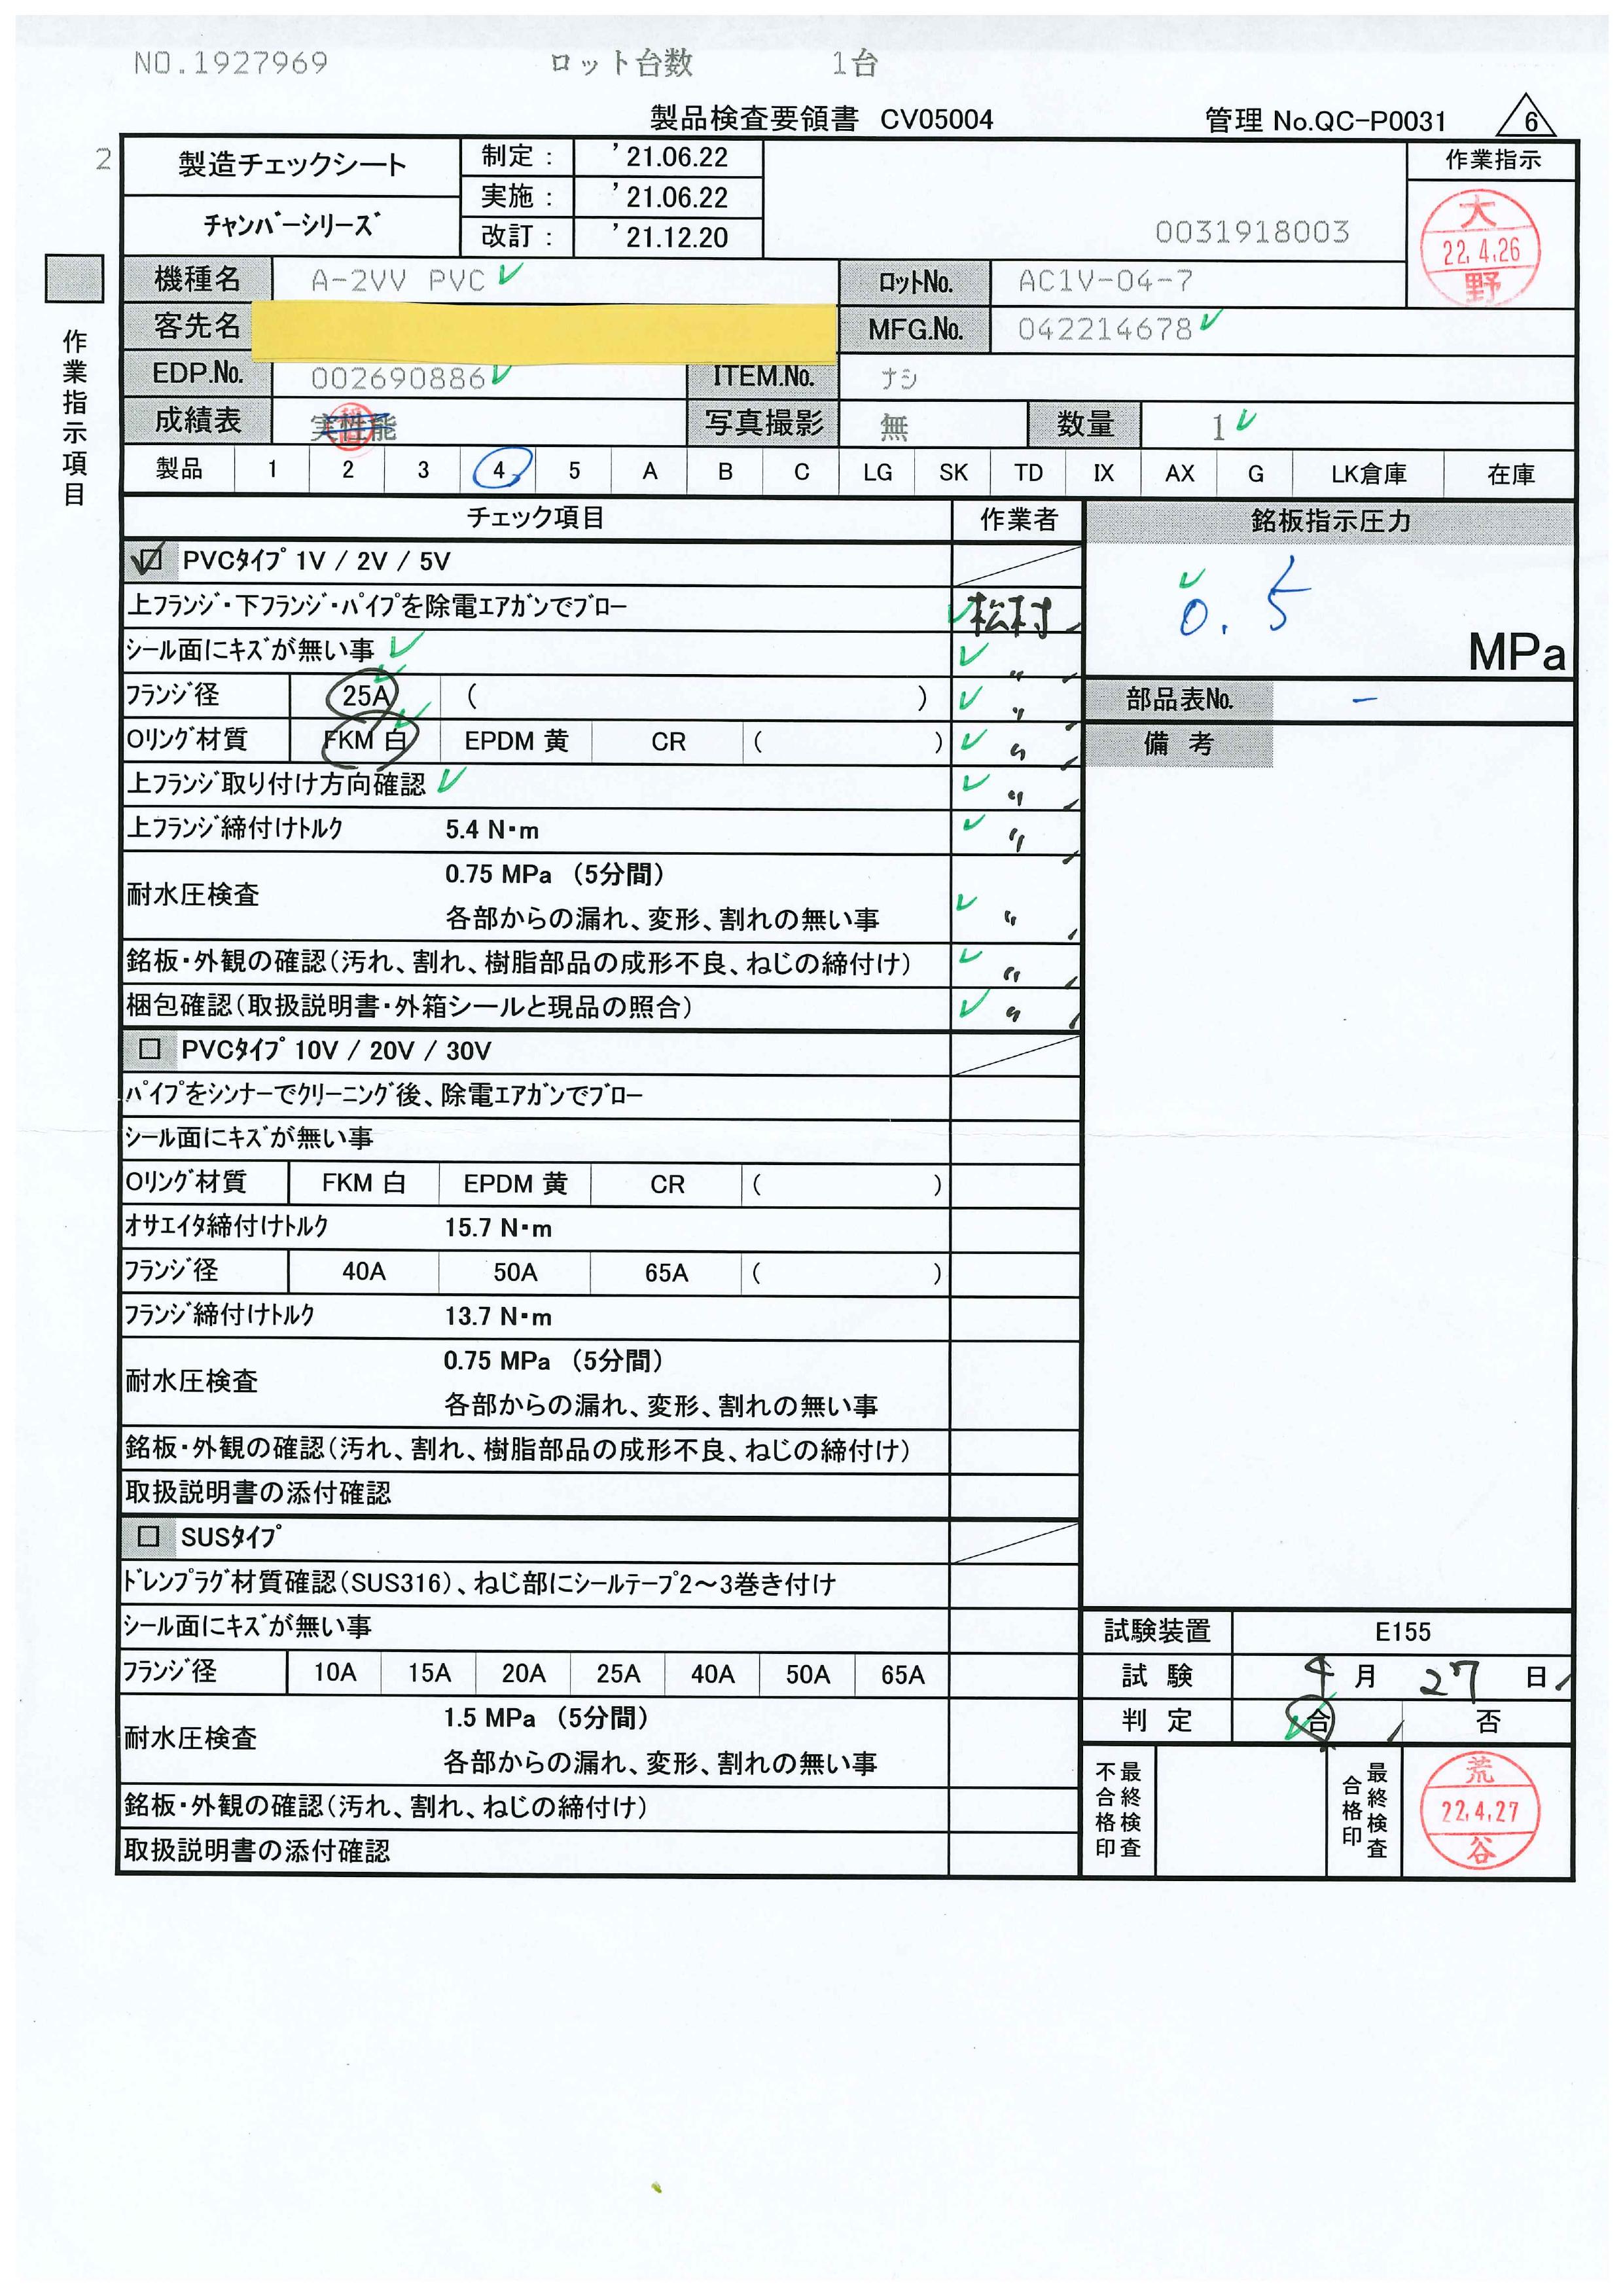 NO.1927969 ロット台数 1台
製品検査要領書 CV05004 管理 No.QC-P0031 6
2
製造チェックシート 制定： ’21.06.22 作業指示
実施： ’21.06.22
チャンバーシリーズ 改訂： ’21.12.20 0031918003
大 22.4.26 野
作業指示項目
機種名 A-2VV PVC ロットNo. AC1V-04-7
客先名 MFG.No. 042214678
EDP.No. 002690886 ITEM.No. ナシ
成績表 写真撮影 無 数量 1
製品 1 2 3 4 5 A B C LG SK TD IX AX G LK倉庫 在庫
チェック項目 作業者 銘板指示圧力
☑ PVCタイプ 1V / 2V / 5V
上フランジ・下フランジ・パイプを除電エアガンでブロー 松村
0.5 MPa
シール面にキズが無い事 〃
フランジ径 25A ( ) 〃 部品表No. －
Oリング材質 FKM 白 EPDM 黄 CR ( ) 〃 備 考
上フランジ取り付け方向確認 〃
上フランジ締付けトルク 5.4 N・m 〃
耐水圧検査 0.75 MPa （5分間）
各部からの漏れ、変形、割れの無い事 〃
銘板・外観の確認（汚れ、割れ、樹脂部品の成形不良、ねじの締付け） 〃
梱包確認（取扱説明書・外箱シールと現品の照合） 〃
□ PVCタイプ 10V / 20V / 30V
パイプをシンナーでクリーニング後、除電エアガンでブロー
シール面にキズが無い事
Oリング材質 FKM 白 EPDM 黄 CR ( )
オサエイタ締付けトルク 15.7 N・m
フランジ径 40A 50A 65A ( )
フランジ締付けトルク 13.7 N・m
耐水圧検査 0.75 MPa （5分間）
各部からの漏れ、変形、割れの無い事
銘板・外観の確認（汚れ、割れ、樹脂部品の成形不良、ねじの締付け）
取扱説明書の添付確認
□ SUSタイプ
ドレンプラグ材質確認（SUS316）、ねじ部にシールテープ2～3巻き付け
シール面にキズが無い事 試験装置 E155
フランジ径 10A 15A 20A 25A 40A 50A 65A 試 験 4 月 27 日
耐水圧検査 1.5 MPa （5分間） 判 定 合 否
各部からの漏れ、変形、割れの無い事
銘板・外観の確認（汚れ、割れ、ねじの締付け）
取扱説明書の添付確認
最終検査不合格印 最終検査合格印 荒 22.4.27 谷